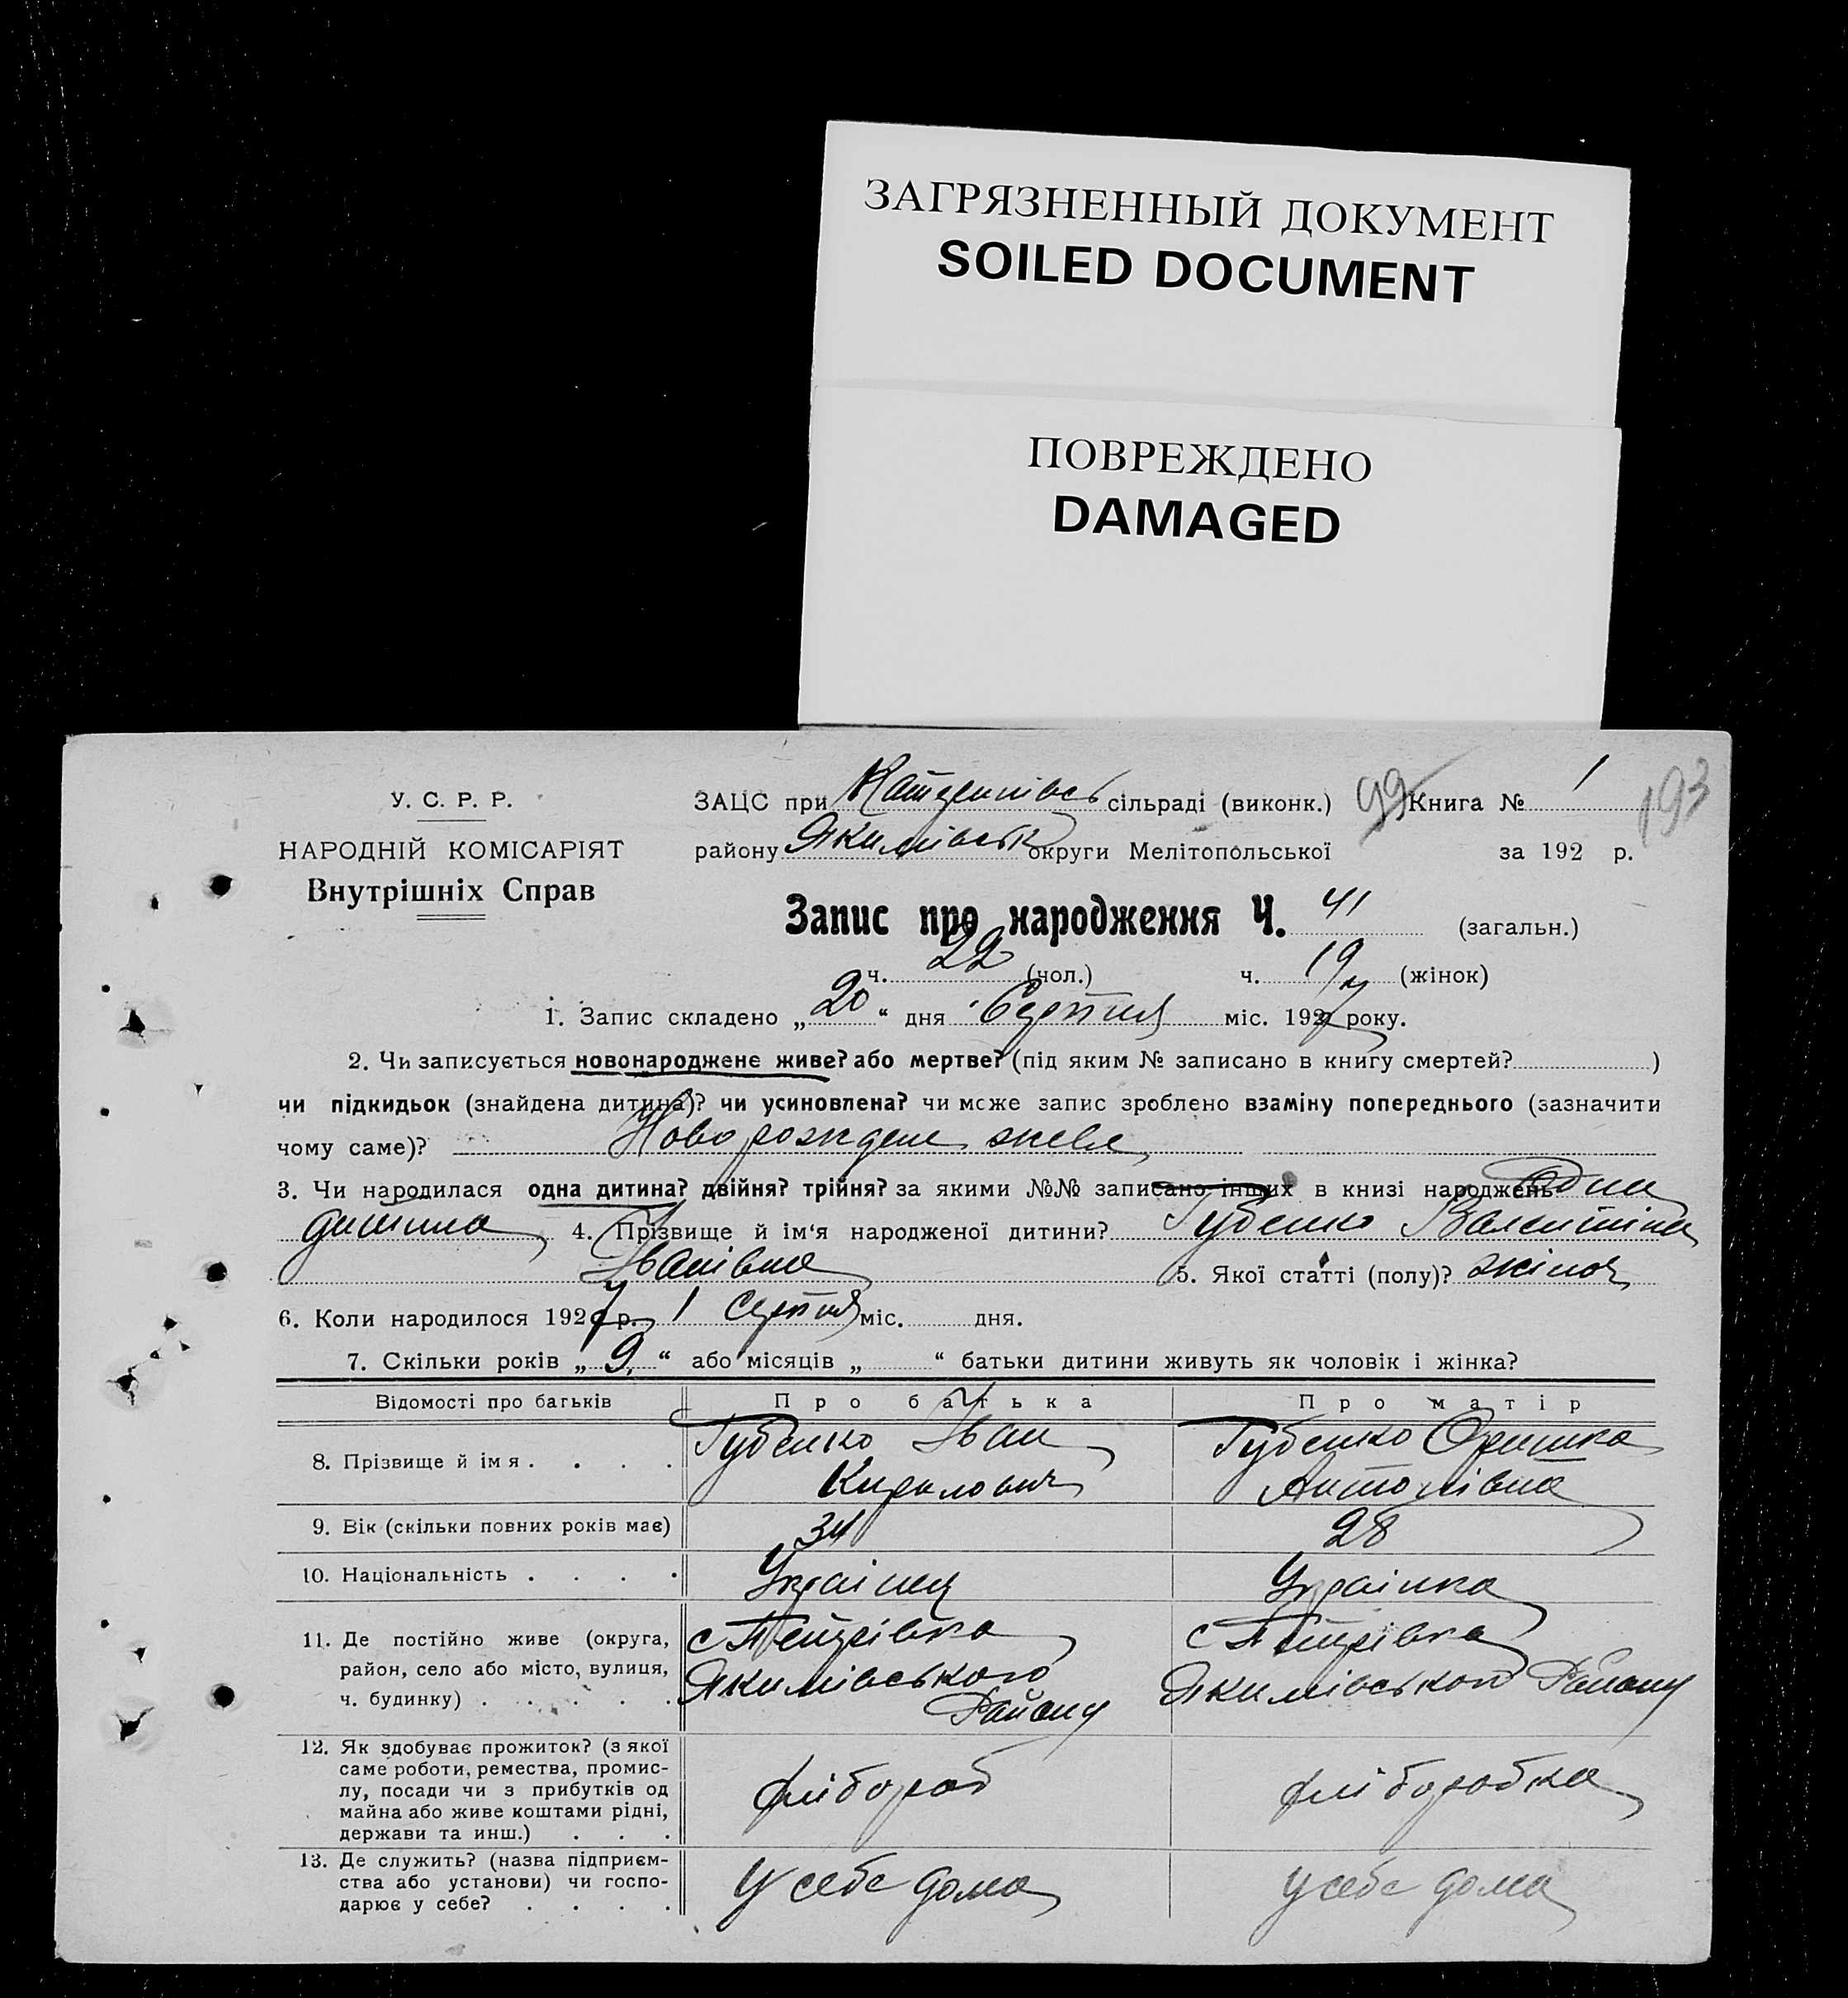 ЗАГРЯЗНЕННЫЙ ДОКУМЕНТ
SOILED DOCUMENT
ПОВРЕЖДЕНО
DAMAGED
193
У. С. Р. Р.
НАРОДНІЙ КОМІСАРІЯТ
Внутрішніх Справ
ЗАЦС при сільраді (виконк.) 99 Книга № 1
району Якимівськ округи Мелітопольської за 192 р.
Запис про народження Ч. 41 (загальн.)
ч. 22 (чол.) ч. 19 (жінок)
1. Запис складено „ 20 “ дня Серпня міс. 1927 року.
2. Чи записується новонароджене живе? або мертве? (під яким № записано в книгу смертей? )
чи підкидьок (знайдена дитина)? чи усиновлена? чи може запис зроблено взаміну попереднього (зазначити
чому саме)? Новорождене живе
3. Чи народилася одна дитина? двійня? трійня? за якими №№ записано інших в книзі народжень Одна
дитина 4. Прізвище й ім‘я народженої дитини? Губенко Валентіна
Іванівна 5. Якої статті (полу)? жіноч
6. Коли народилося 1927 р. 1 Серпня міс. дня.
7. Скільки років „ 9 “ або місяців „ “ батьки дитини живуть як чоловік і жінка?
Відомості про батьків Про батька Про матір
8. Прізвище й імя . . . . Губенко Іван Губенко Оришка
Кирилович Антонівна
9. Вік (скільки повних років має) 34 28
10. Національність . . . . Українец Українка
11. Де постійно живе (округа, с Петрівка с Петрівка
район, село або місто, вулиця, Якимівського Якимівського Району
ч. будинку) . . . . . Району
12. Як здобуває прожиток? (з якої
саме роботи, ремества, промис-
лу, посади чи з прибутків од хлібороб хліборобка
майна або живе коштами рідні,
держави та инш.) . . .
13. Де служить? (назва підприєм-
ства або установи) чи госпо- У себе дома У себе дома
дарює у себе? . . . .